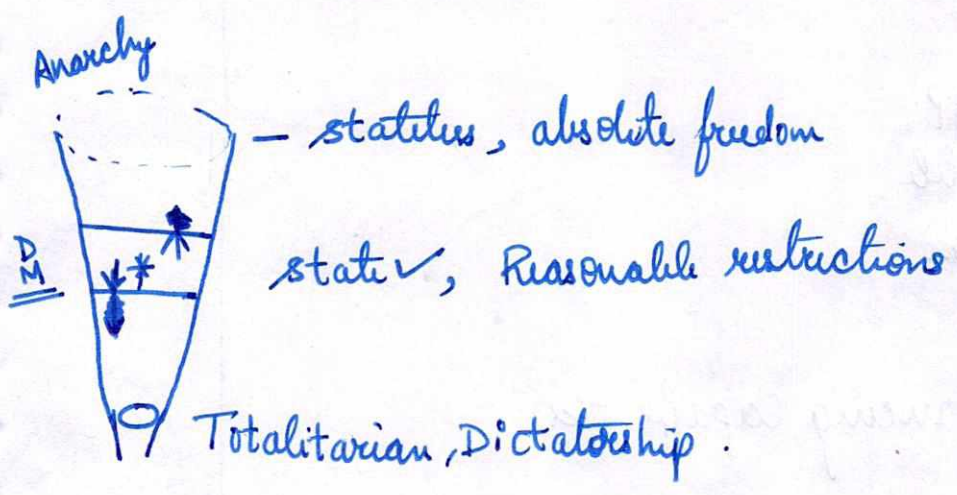 Anarchy
– stateless, absolute freedom
DM
state ✓, Reasonable restrictions
*
Totalitarian, Dictatorship.